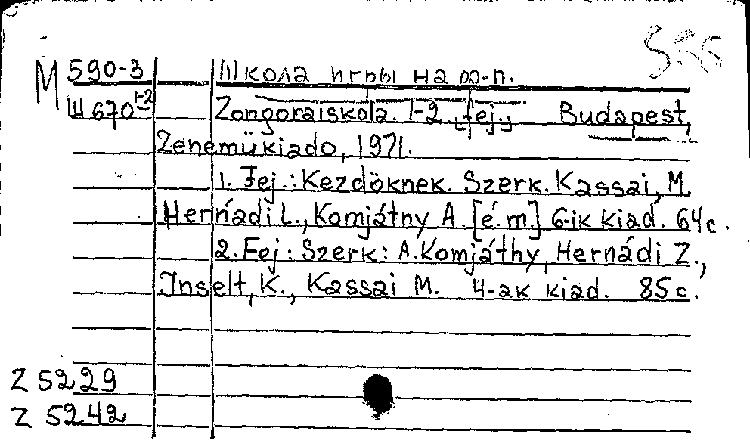 М 590-3 Школа игры на ф-п.
Ш 670 1-2 Zongoraiskola. 1-2 fej., Budapest,
Zeneműkiado, 1971.
1. Fej.: Kezdöknek. Szerk. Kassai, M.
Hernádi L., Komjátny A. [é.m.] 6-ik kiad. 64c.
2. Fej: Szerk: A. Komjáthy, Hernádi Z.,
Inselt, K., Kassai M. 4-ак kiad. 85c.
Z 5229
Z 5242